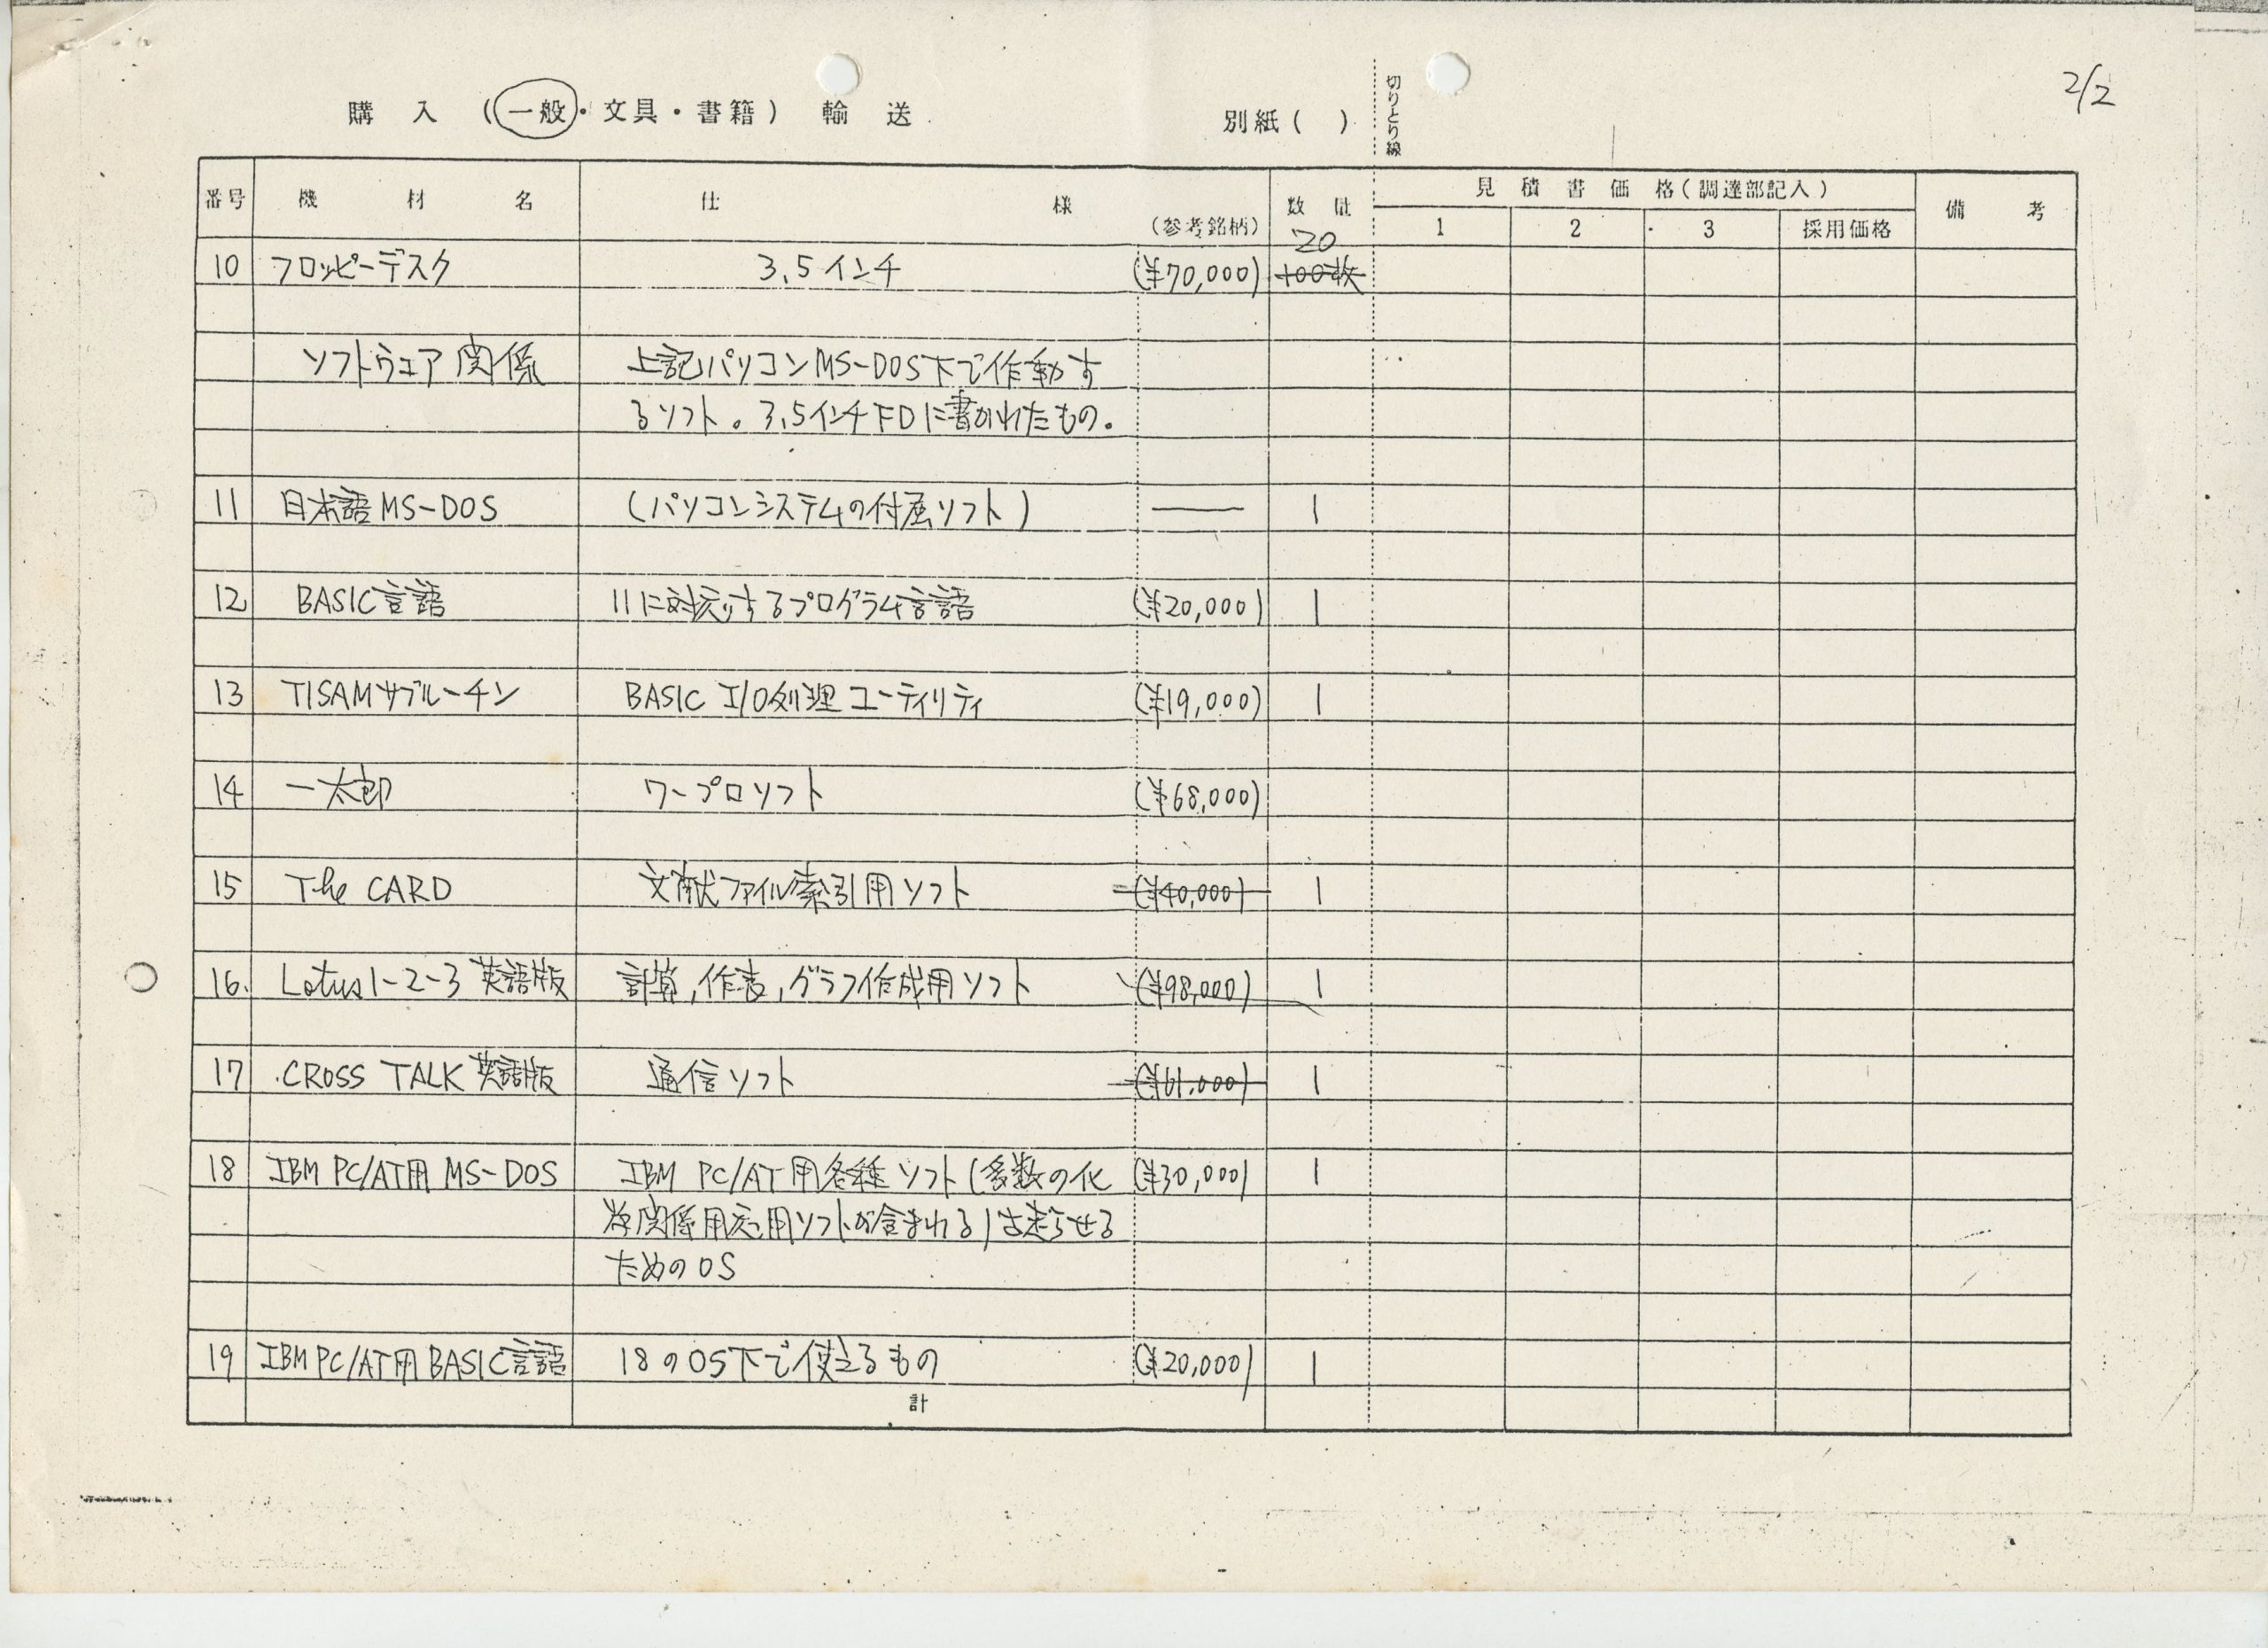 2/2
購入(一般・文具・書籍)輸送 別紙( ) 切りとり線
番号 機材名 仕様 (参考銘柄) 数量 見積書価格(調達部記入) 備考
1 2 3 採用価格
20
10 フロッピーデスク 3.5インチ (¥70,000) 100枚
ソフトウェア関係 上記パソコンMS-DOS下で作動す
るソフト。3.5インチFDに書かれたもの。
11 日本語MS-DOS (パソコンシステムの付属ソフト) — 1
12 BASIC言語 11に対応するプログラム言語 (¥20,000) 1
13 TISAMサブルーチン BASIC I/O処理ユーティリティ (¥19,000) 1
14 一太郎 ワープロソフト (¥68,000)
15 The CARD 文献ファイル索引用ソフト (¥40,000) 1
16. Lotus1-2-3 英語版 計算,作表,グラフ作成用ソフト (¥98,000) 1
17 CROSS TALK 英語版 通信ソフト (¥61,000) 1
18 IBM PC/AT用 MS-DOS IBM PC/AT用各種ソフト(多数の化 (¥30,000) 1
学関係用応用ソフトが含まれる)は走らせる
ためのOS
19 IBM PC/AT用 BASIC言語 18のOS下で使えるもの (¥20,000) 1
計